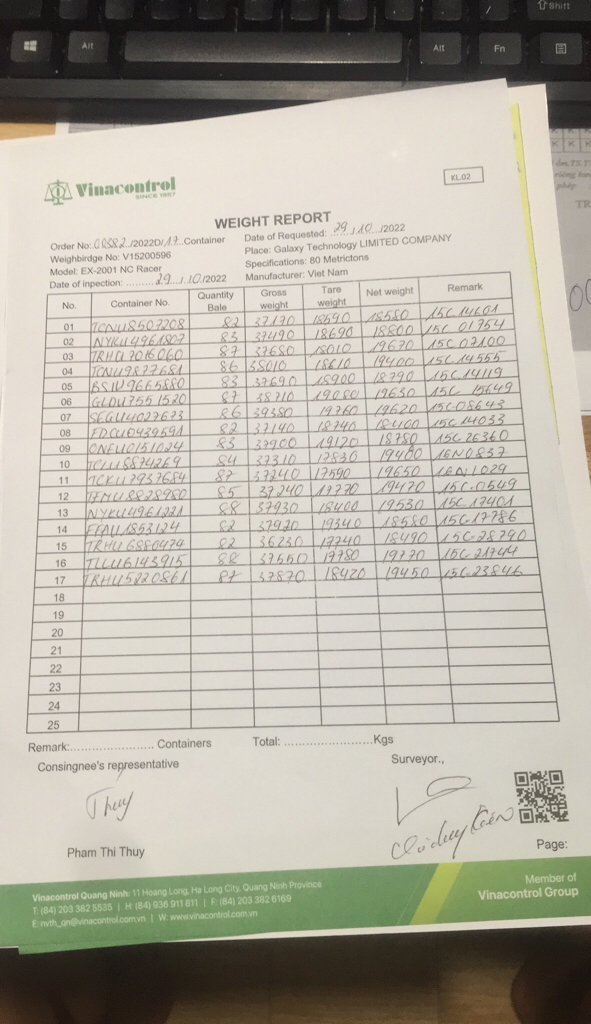 Shift
Alt
Alt
Fn
Vinacontrol
SINCE 1957
KL.02
WEIGHT REPORT
Order No: 00582 /2022D/17 Container
Date of Requested: 29 / 10 /2022
Weighbirdge No: V15200596
Place: Galaxy Technology LIMITED COMPANY
Model: EX-2001 NC Racer
Specifications: 80 Metrictons
Date of inpection: 29 / 10 /2022
Manufacturer: Viet Nam
No. Container No. Quantity Bale Gross weight Tare weight Net weight Remark
01 TCNU8507208 82 37170 18590 18580 15C 14601
02 NYKU4961807 83 37490 18690 18800 15C 01754
03 TRHU7016060 87 37680 18010 19670 15C 07100
04 TCNU9877681 86 38010 18610 19400 15C 14555
05 BSIU9665880 83 37690 18900 18790 15C 14119
06 GLDU7551520 87 38710 19080 19630 15C 15649
07 SEGU4027673 86 39380 19760 19620 15C-08643
08 FDCU0439591 82 37140 18740 18400 15C 14033
09 ONEU0151024 83 37900 19120 18780 15C 26360
10 TCLU8874269 84 37310 17830 19480 16N0837
11 TCKU7937684 87 37240 17590 19650 16N1029
12 TEMU8828980 85 37240 17770 19470 15C-0649
13 NYKU4961221 88 37930 18400 19530 15C-17401
14 FFAU1853124 82 37920 19340 18580 15C-17786
15 TRHU6880474 82 36230 17740 18490 15C-28790
16 TLLU6143915 88 37550 17780 19770 15C-21744
17 TRHU5220861 87 37870 18420 19450 15C-23846
18
19
20
21
22
23
24
25
Remark: Containers Total: Kgs
Consingnee's representative
Surveyor.,
Thuy
Pham Thi Thuy
Page:
Vinacontrol Quang Ninh: 11 Hoang Long, Ha Long City, Quang Ninh Province
T: (84) 203 382 5535 | H: (84) 936 911 811 | F: (84) 203 382 6169
E: nvth_qn@vinacontrol.com.vn | W: www.vinacontrol.com.vn
Member of
Vinacontrol Group